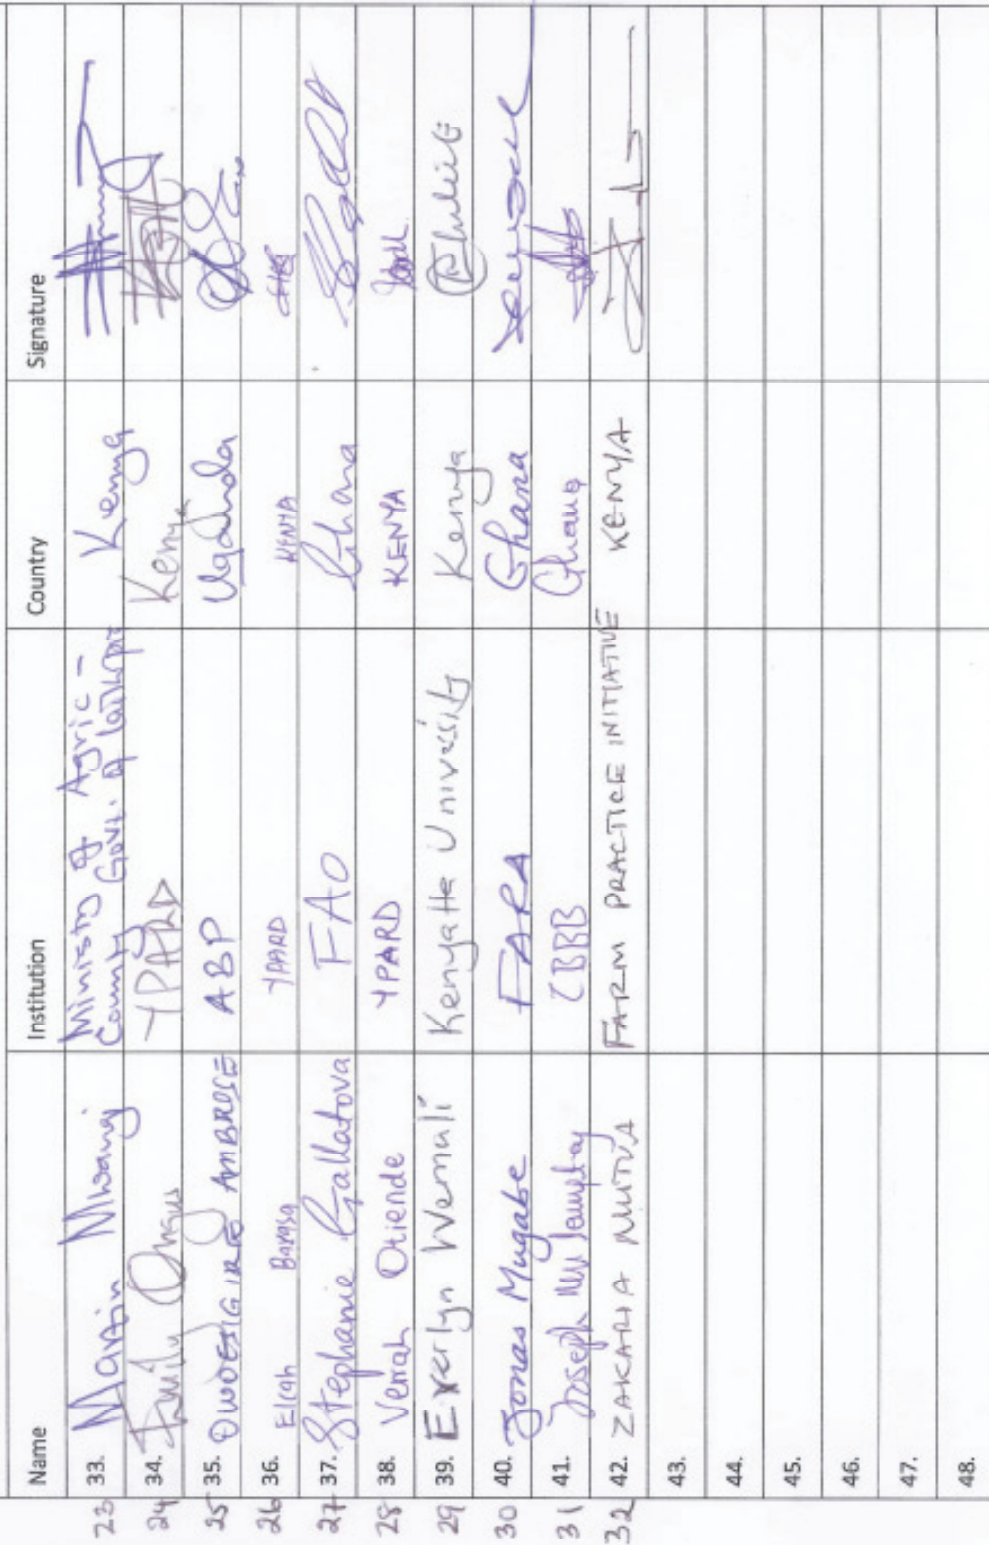 Name Institution Country Signature
23 33. Martin Mwangi Ministry of Agric - Kenya
County Govt. of
24 34. Emily YPARD Kenya
25 35. AMBROSE ABP Uganda
26 36. Elcah Barasa YPARD KENYA
27 37. Stephanie Gallatova FAO Ghana
28 38. Verrah Otiende YPARD KENYA
29 39. Everlyn Wemali Kenyatta University Kenya
30 40. Jonas Mugabe FARA Ghana
31 41. Joseph Ghana
32 42. ZAKARIA FARM PRACTICE INITIATIVE KENYA
43.
44.
45.
46.
47.
48.